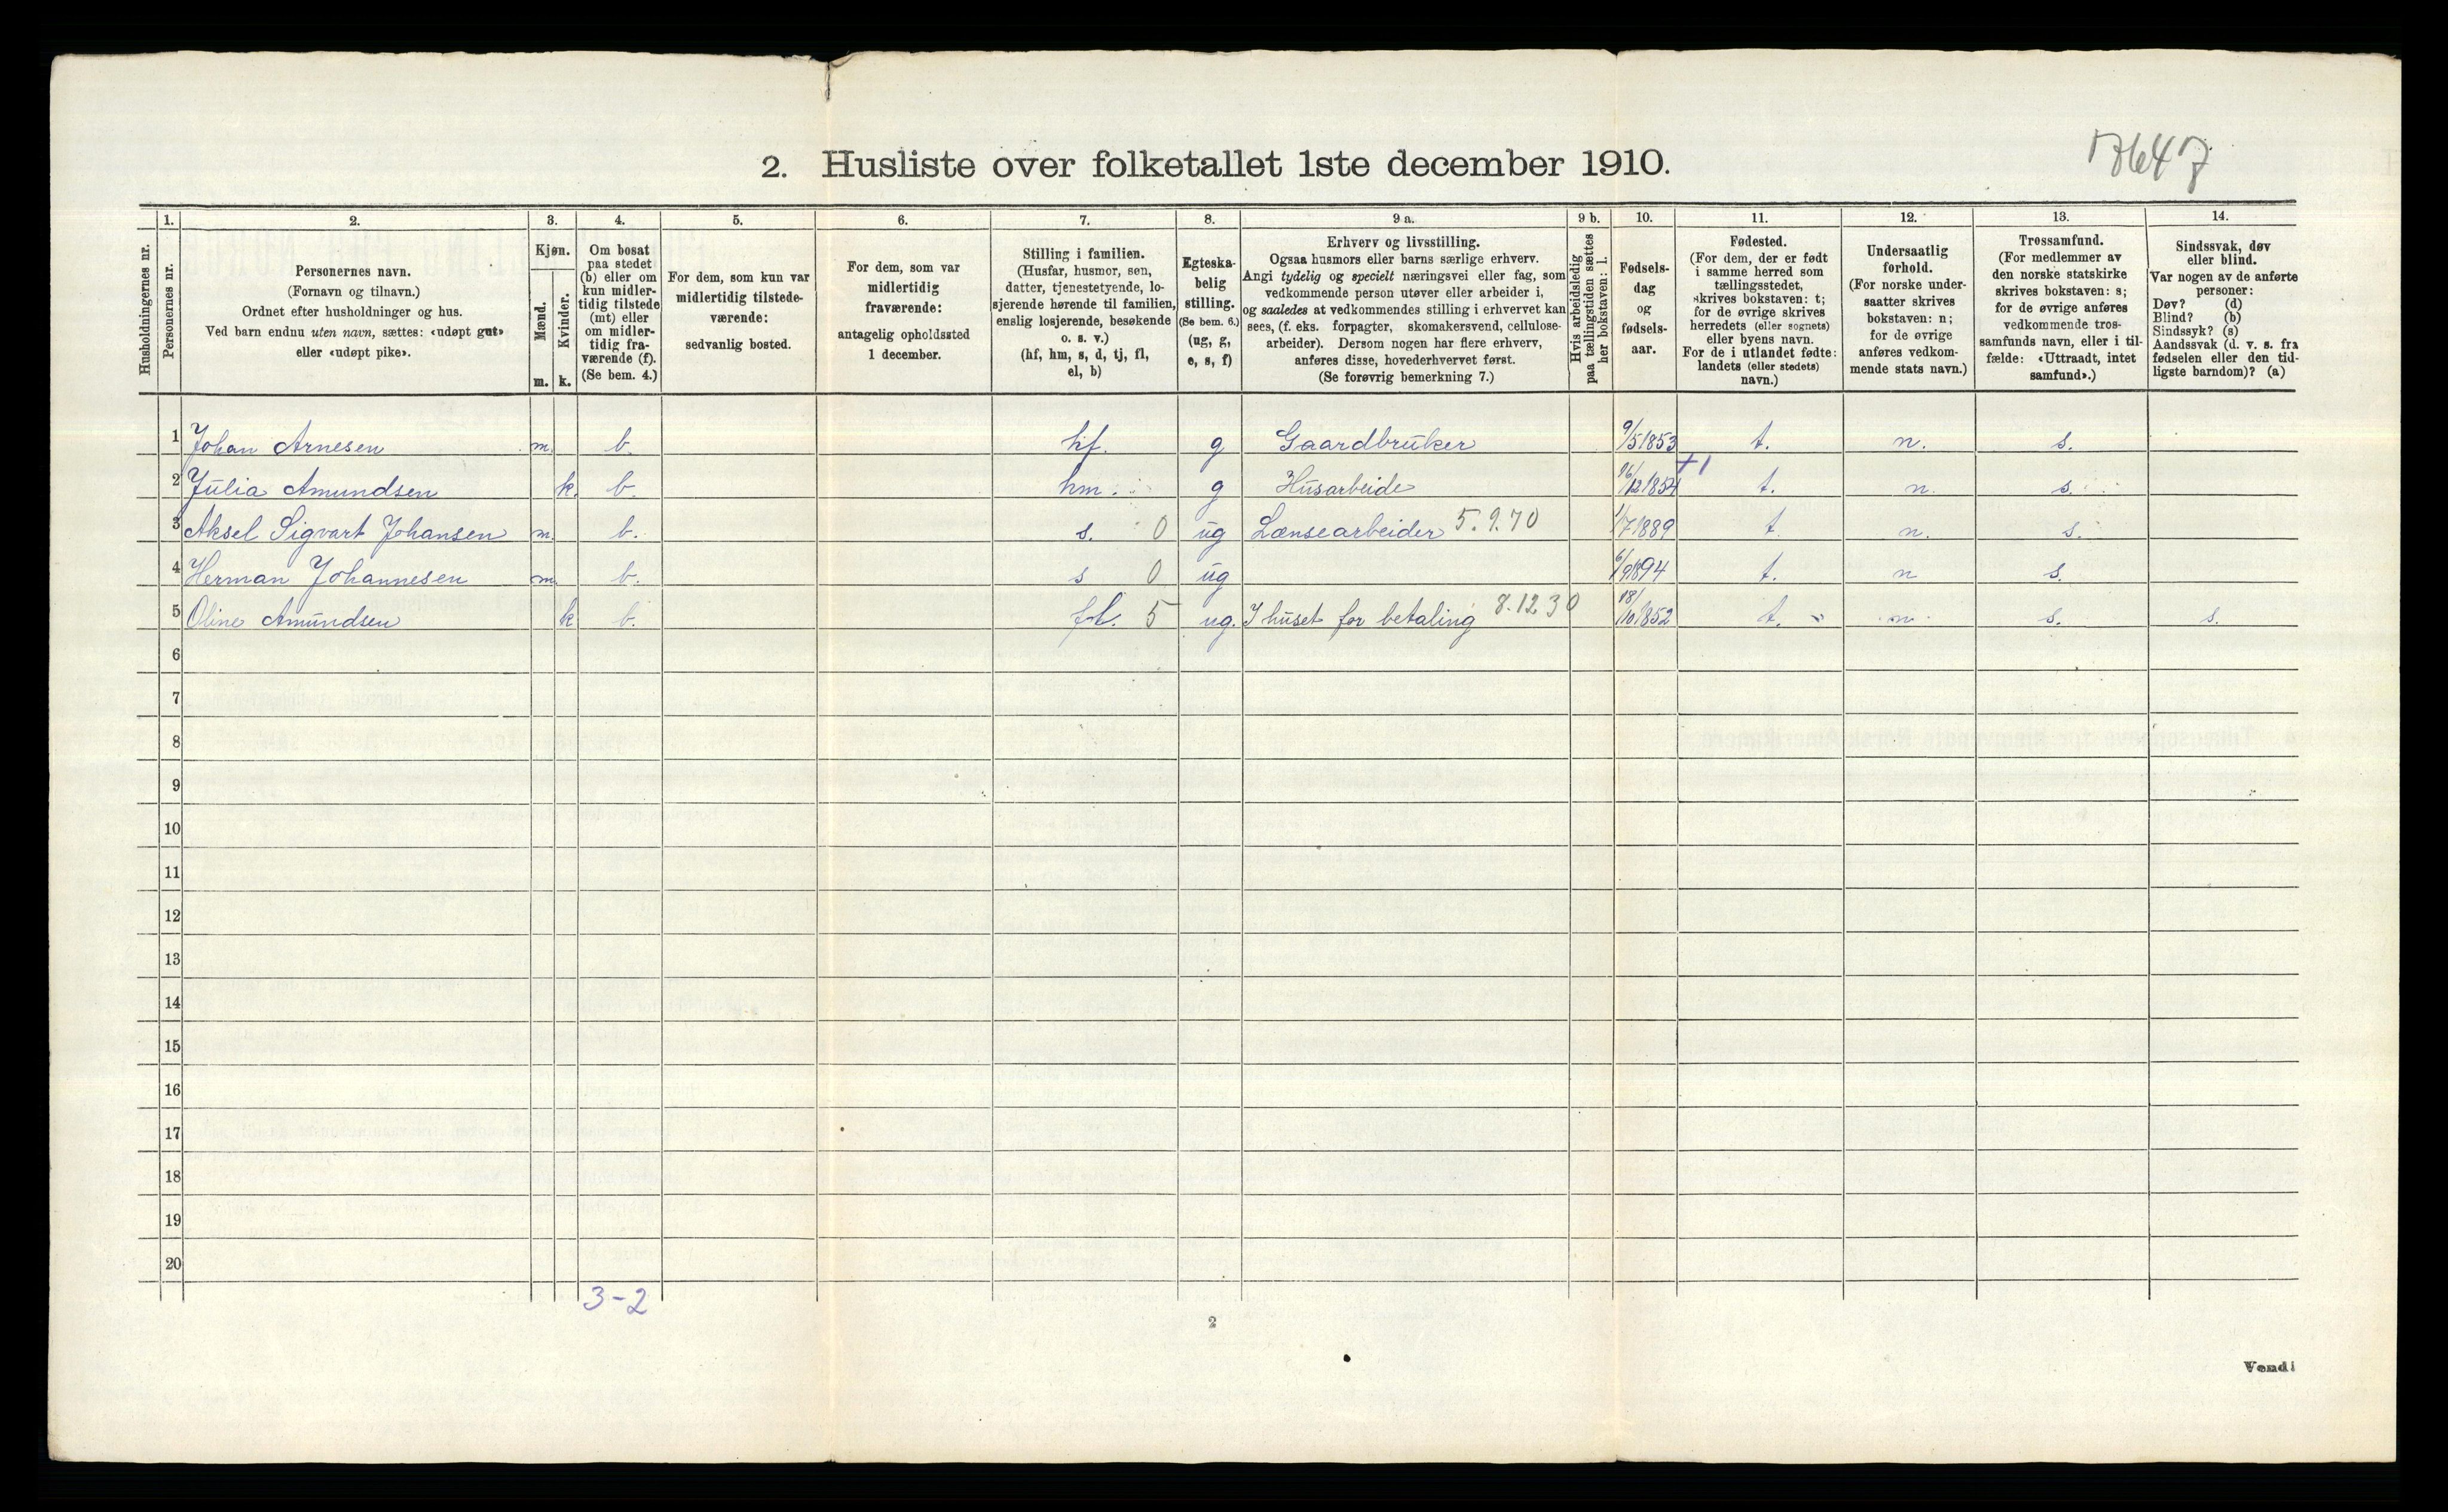 2. Husliste over folketallet 1ste december 1910.
1. 2. 3. 4. 5. 6. 7. 8. 9 a. 9 b. 10. 11. 12. 13. 14.
Husholdningernes nr.
Personernes nr.
Personernes navn.
(Fornavn og tilnavn.)
Ordnet efter husholdninger og hus.
Ved barn endnu uten navn, sættes: «udøpt gut»
eller «udøpt pike».
Kjøn.
Mænd.
m.
Kvinder.
k.
Om bosat
paa stedet
(b) eller om
kun midler-
tidig tilstede
(mt) eller
om midler-
tidig fra-
værende (f).
(Se bem. 4.)
For dem, som kun var
midlertidig tilstede-
værende:
sedvanlig bosted.
For dem, som var
midlertidig
fraværende:
antagelig opholdssted
1 december.
Stilling i familien.
(Husfar, husmor, søn,
datter, tjenestetyende, lo-
sjerende hørende til familien,
enslig losjerende, besøkende
o. s. v.)
(hf, hm, s, d, tj, fl,
el, b)
Egteska-
belig
stilling.
(Se bem. 6.)
(ug, g,
e, s, f)
Erhverv og livsstilling.
Ogsaa husmors eller barns særlige erhverv.
Angi tydelig og specielt næringsvei eller fag, som
vedkommende person utøver eller arbeider i,
og saaledes at vedkommendes stilling i erhvervet kan
sees, (f. eks. forpagter, skomakersvend, cellulose-
arbeider). Dersom nogen har flere erhverv,
anføres disse, hovederhvervet først.
(Se forøvrig bemerkning 7.)
Hvis arbeidsledig
paa tællingstiden sættes
her bokstaven: l.
Fødsels-
dag
og
fødsels-
aar.
Fødested.
(For dem, der er født
i samme herred som
tællingsstedet,
skrives bokstaven: t;
for de øvrige skrives
herredets (eller sognets)
eller byens navn.
For de i utlandet fødte:
landets (eller stedets)
navn.)
Undersaatlig
forhold.
(For norske under-
saatter skrives
bokstaven: n;
for de øvrige
anføres vedkom-
mende stats navn.)
Trossamfund.
(For medlemmer av
den norske statskirke
skrives bokstaven: s;
for de øvrige anføres
vedkommende tros-
samfunds navn, eller i til-
fælde: «Uttraadt, intet
samfund».)
Sindssvak, døv
eller blind.
Var nogen av de anførte
personer:
Døv? (d)
Blind? (b)
Sindssyk? (s)
Aandssvak (d. v. s. fra
fødselen eller den tid-
ligste barndom)? (a)
1 Johan Arnesen m. b. hf. g Gaardbruker 9/5 1853 t. n. s.
2 Julia Amundsen k. b. hm. g Husarbeide 16/12 1854 +1 t. n. s.
3 Aksel Sigvart Johansen m. b. s. 0 ug Lænsearbeider 5.9.70 1/7 1889 t. n. s.
4 Herman Johannesen m. b. s 0 ug 6/9 1894 t. n s.
5 Oline Amundsen k b. fl. 5 ug. I huset for betaling 8.12 30 18/10 1852 t. n. s. s.
6
7
8
9
10
11
12
13
14
15
16
17
18
19
20
3-2
2
Vend!